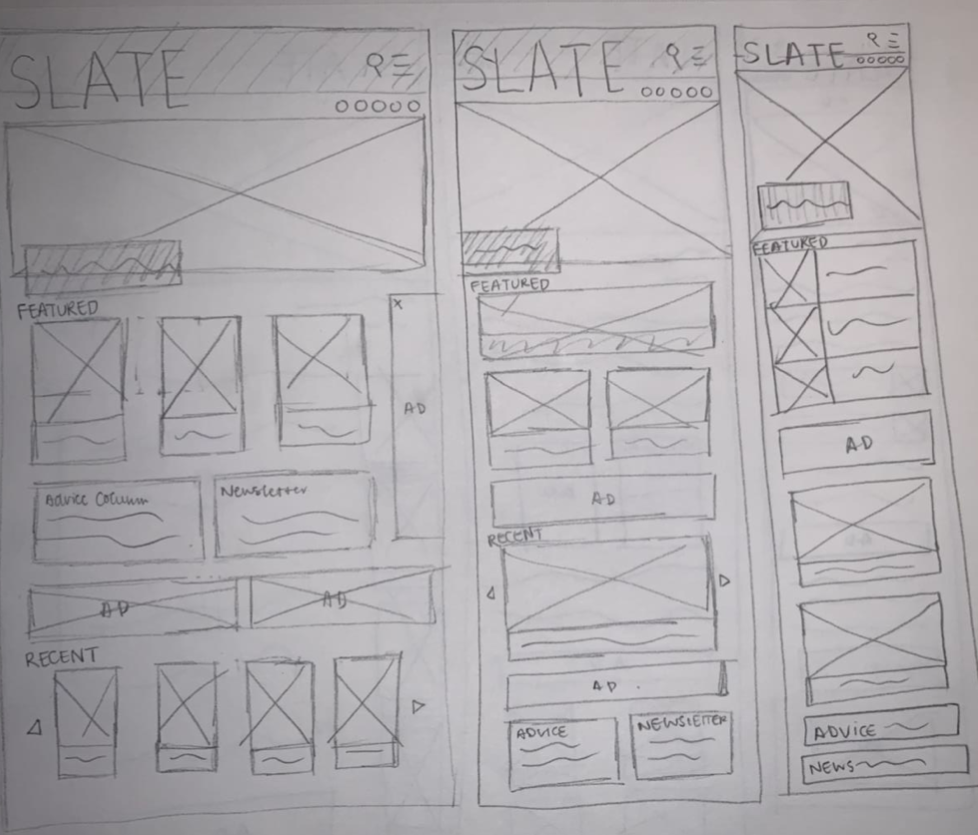 SLATE
FEATURED
X
AD
Advice Column
Newsletter
AD
AD
RECENT
SLATE
FEATURED
AD
RECENT
AD
ADVICE
NEWSLETTER
SLATE
FEATURED
AD
ADVICE
NEWS